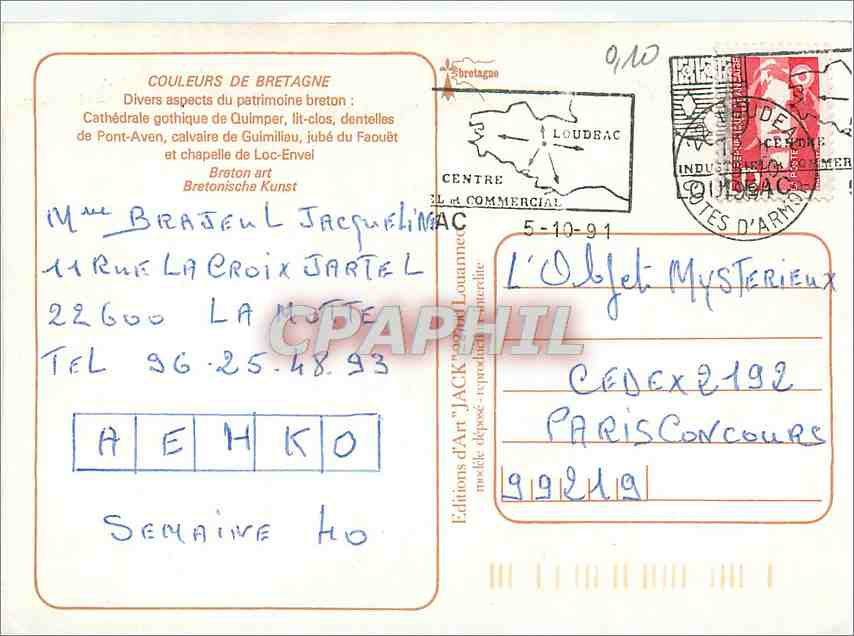 0,10
COULEURS DE BRETAGNE
Divers aspects du patrimoine breton :
Cathédrale gothique de Quimper, lit-clos, dentelles
de Pont-Aven, calvaire de Guimiliau, jubé du Faouët
et chapelle de Loc-Envel
Breton art
Bretonische Kunst
bretagne
LOUDEAC
CENTRE
EL et COMMERCIAL
AC
5-10-91
LOUDEAC
CENTRE
INDUSTRIEL et COMMER
LOUDEAC
COTES D'ARMOR
Mme BRAJEUL JACQUELINE
11 RUE LA CROIX JARTEL
22600 LA MOTTE
TEL 96.25.48.93
A E H K O
SEMAINE 40
Editions d'Art "JACK" Louannec
modèle déposé - reproduction interdite
L'Objet MYSTERIEUX
CEDEX 2192
PARIS CONCOURS
99219
CPAPHIL